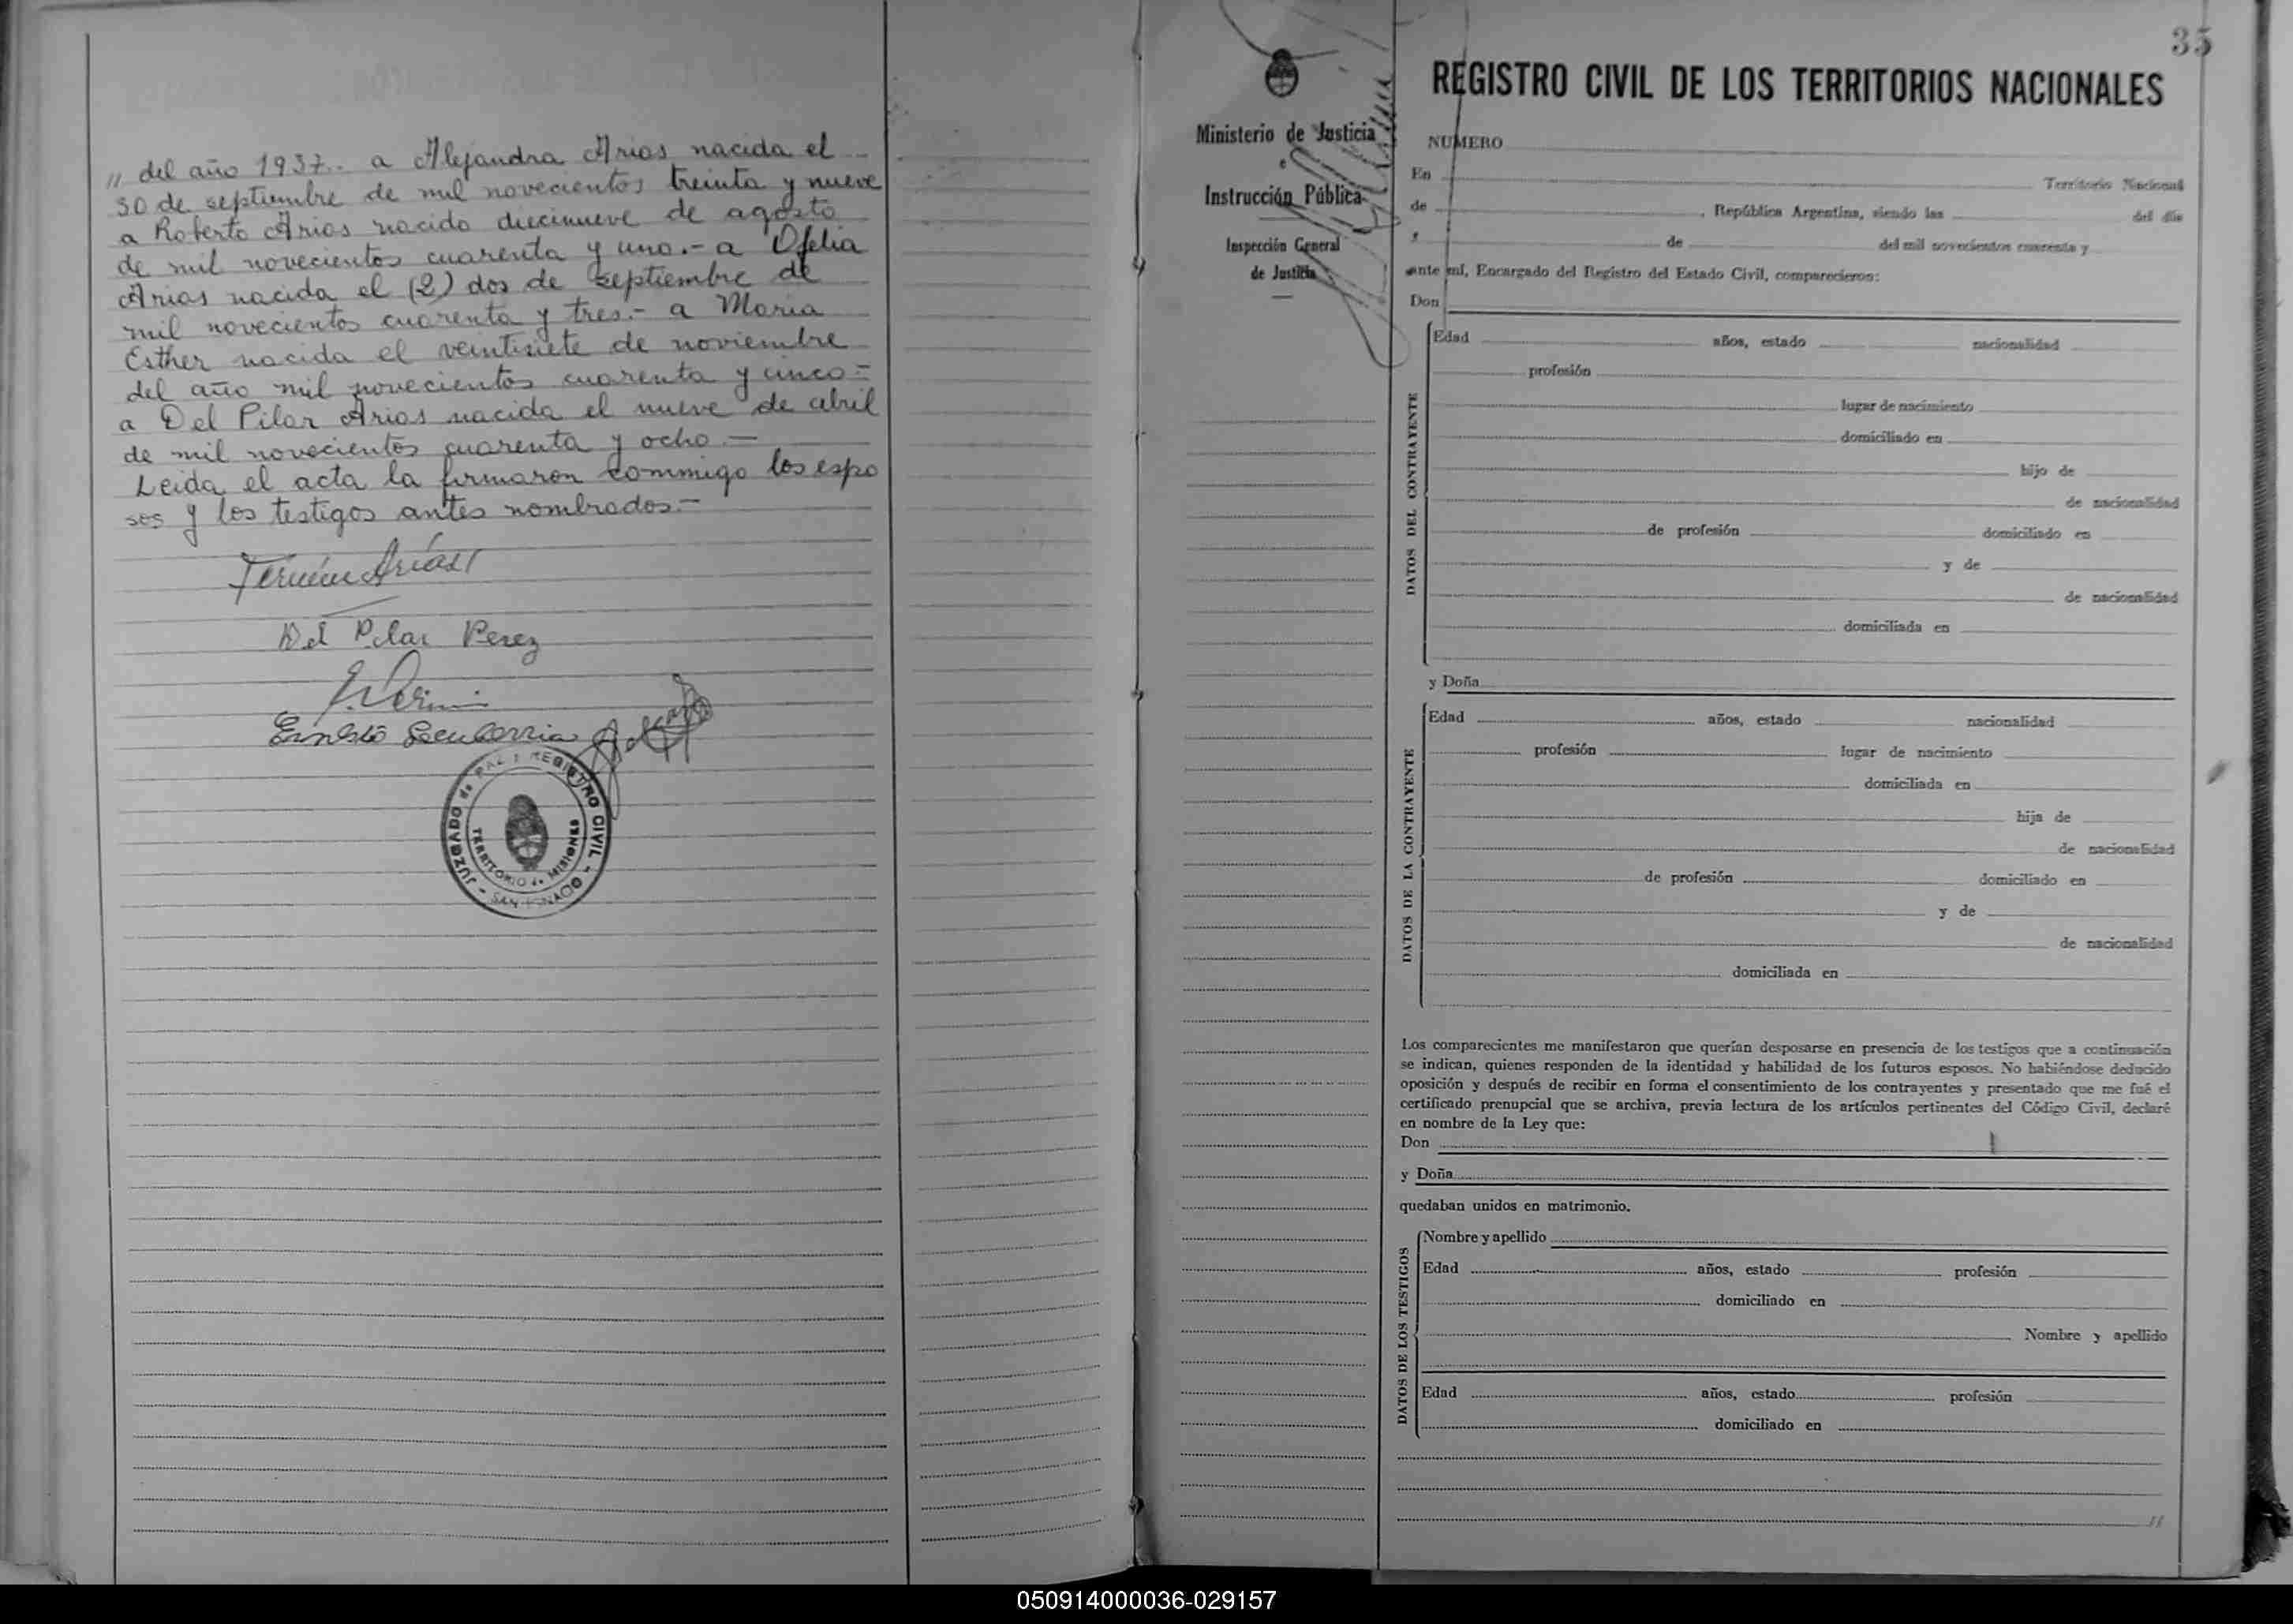 // del año 1937.. a Alejandra Arias nacida el
30 de septiembre de mil novecientos treinta y nueve
a Roberto Arias nacido diecinueve de agosto
de mil novecientos cuarenta y uno.- a Ofelia
Arias nacida el (2) dos de septiembre de
mil novecientos cuarenta y tres.- a Maria
Esther nacida el veintisiete de noviembre
del año mil novecientos cuarenta y cinco =
a Del Pilar Arias nacida el nueve de abril
de mil novecientos cuarenta y ocho.—
Leida el acta la firmaron commigo los espo
sos y los testigos antes nombrados.-
Fermín Arias
Del Pilar Perez
Ernesto
JUZGADO de PAZ y REGISTRO CIVIL - SAN IGNACIO -
TERRITORIO de MISIONES
35
Ministerio de Justicia
e
Instrucción Pública
Inspección General
de Justicia
REGISTRO CIVIL DE LOS TERRITORIOS NACIONALES
NUMERO
En Territorio Nacional
de , República Argentina, siendo las del día
de del mil novecientos cuarenta y
ante mí, Encargado del Registro del Estado Civil, comparecieron:
Don
DATOS DEL CONTRAYENTE
Edad años, estado nacionalidad
profesión
lugar de nacimiento
domiciliado en
hijo de
de nacionalidad
de profesión domiciliado en
y de
de nacionalidad
domiciliada en
y Doña
DATOS DE LA CONTRAYENTE
Edad años, estado nacionalidad
profesión lugar de nacimiento
domiciliada en
hija de
de nacionalidad
de profesión domiciliado en
y de
de nacionalidad
domiciliada en
Los comparecientes me manifestaron que querían desposarse en presencia de los testigos que a continuación
se indican, quienes responden de la identidad y habilidad de los futuros esposos. No habiéndose deducido
oposición y después de recibir en forma el consentimiento de los contrayentes y presentado que me fué el
certificado prenupcial que se archiva, previa lectura de los artículos pertinentes del Código Civil, declaré
en nombre de la Ley que:
Don
y Doña
quedaban unidos en matrimonio.
DATOS DE LOS TESTIGOS
Nombre y apellido
Edad años, estado profesión
domiciliado en
Nombre y apellido
Edad años, estado profesión
domiciliado en
//
050914000036-029157